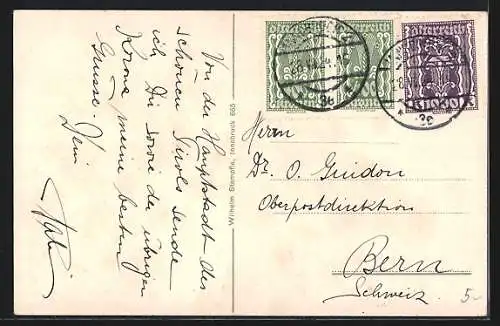 Von der Hauptstadt des
schönen Tirols sende
ich Dir sowie der übrigen
Krone meine besten
Grüsse. Dein
Wilhelm Stempfle, Innsbruck 665
Österreich
1000 K
Herrn
Dr. O. Guidon
Oberpostdirektion
Bern
Schweiz.
5.-